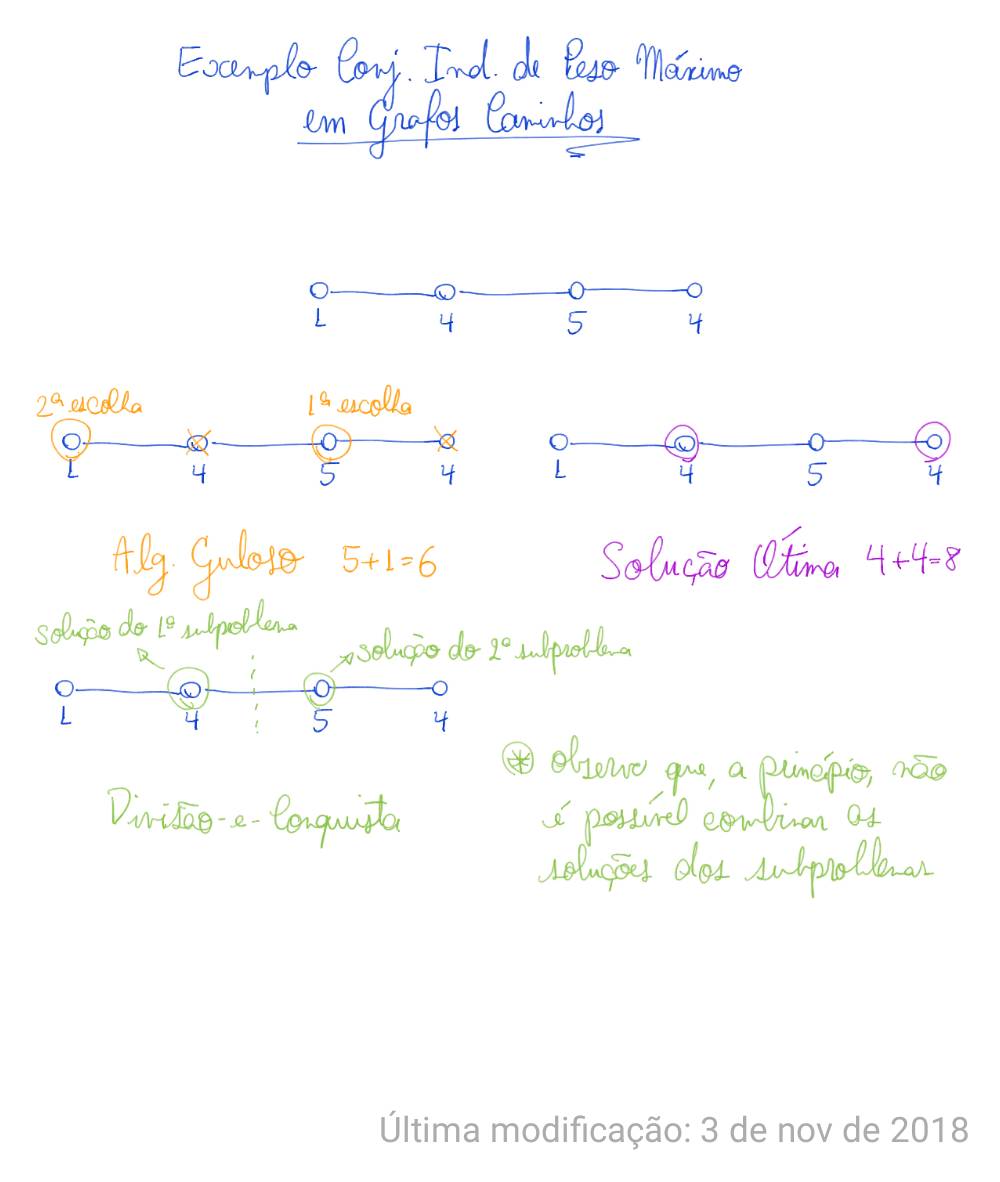 Exemplo Conj. Ind. de Peso Máximo
em Grafos Caminhos
1 4 5 4
2ª escolha 1ª escolha
1 4 5 4
1 4 5 4
Alg. Guloso 5+1=6
Solução Ótima 4+4=8
solução do 1º subproblema
solução do 2º subproblema
1 4 5 4
Divisão-e-Conquista
* observe que, a princípio, não
é possível combinar as
soluções dos subproblemas
Última modificação: 3 de nov de 2018